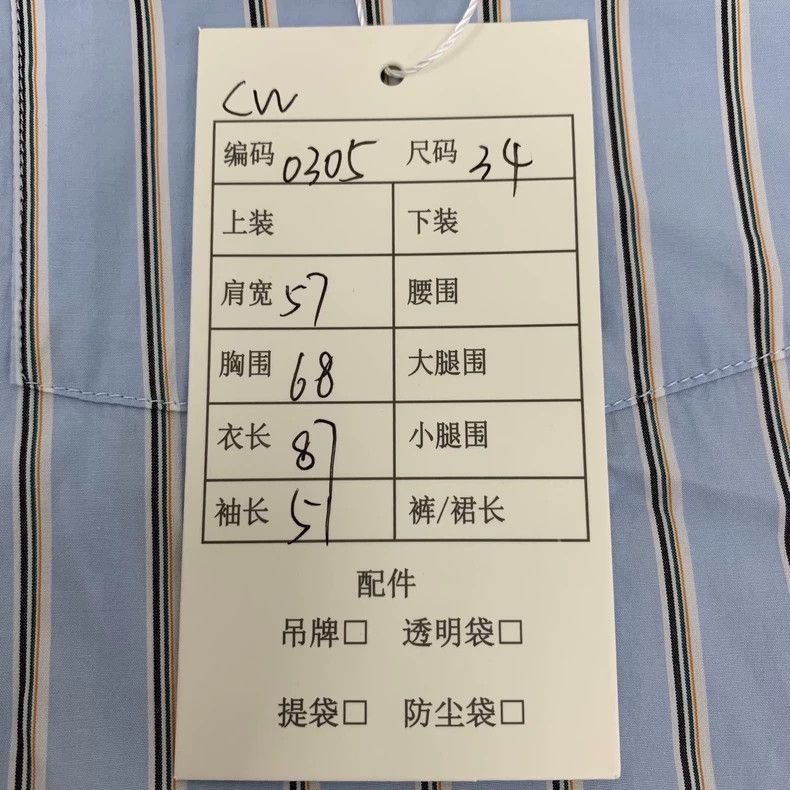 CW
编码 0305 尺码 34
上装 下装
肩宽 57 腰围
胸围 68 大腿围
衣长 87 小腿围
袖长 51 裤/裙长
配件
吊牌□ 透明袋□
提袋□ 防尘袋□